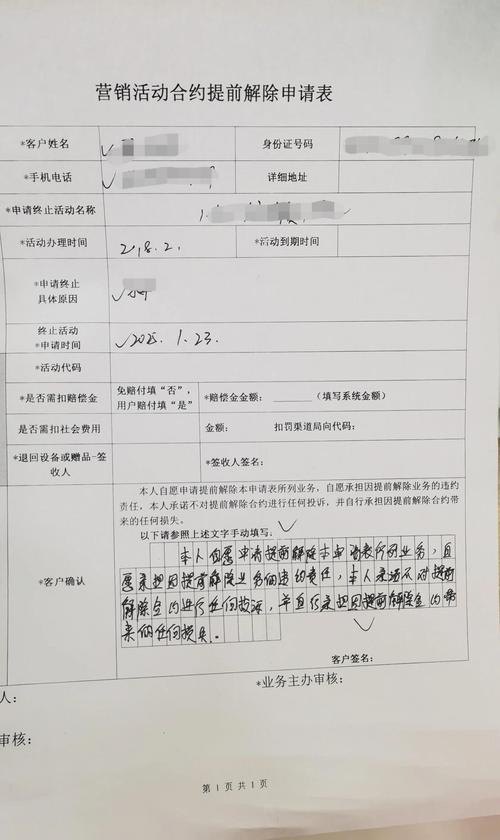 营销活动合约提前解除申请表
*客户姓名 身份证号码
*手机电话 详细地址
*申请终止活动名称
*活动办理时间 *活动到期时间
*申请终止
具体原因
终止活动
*申请时间 2025.1.23.
*活动代码
*是否需扣赔偿金 免赔付填“否”，
用户赔付填“是” *赔偿金金额：______（填写系统金额）
是否需扣社会费用 金额： 扣罚渠道局向代码：
*退回设备或赠品-签
收人 *签收人签名：
本人自愿申请提前解除本申请表所列业务，自愿承担因提前解除业务的违约
责任，本人承诺不对提前解除合约进行任何投诉，并自行承担因提前解除合约带
来的任何损失。
以下请参照上述文字手动填写：
*客户确认
本人自愿申请提前解除本申请表所列业务，自
愿承担因提前解除业务的违约责任，本人承诺不对提前
解除合约进行任何投诉，并自行承担因提前解除合约带
来的任何损失。
客户签名：
*业务主办审核：
人：
审核：
第 1 页 共 1 页